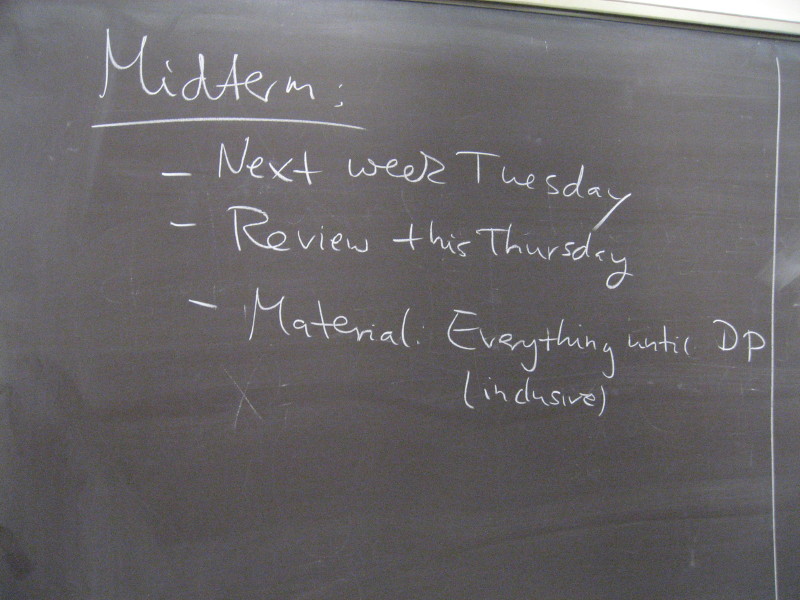 Midterm:
- Next week Tuesday
- Review this Thursday
- Material: Everything until DP
(inclusive)